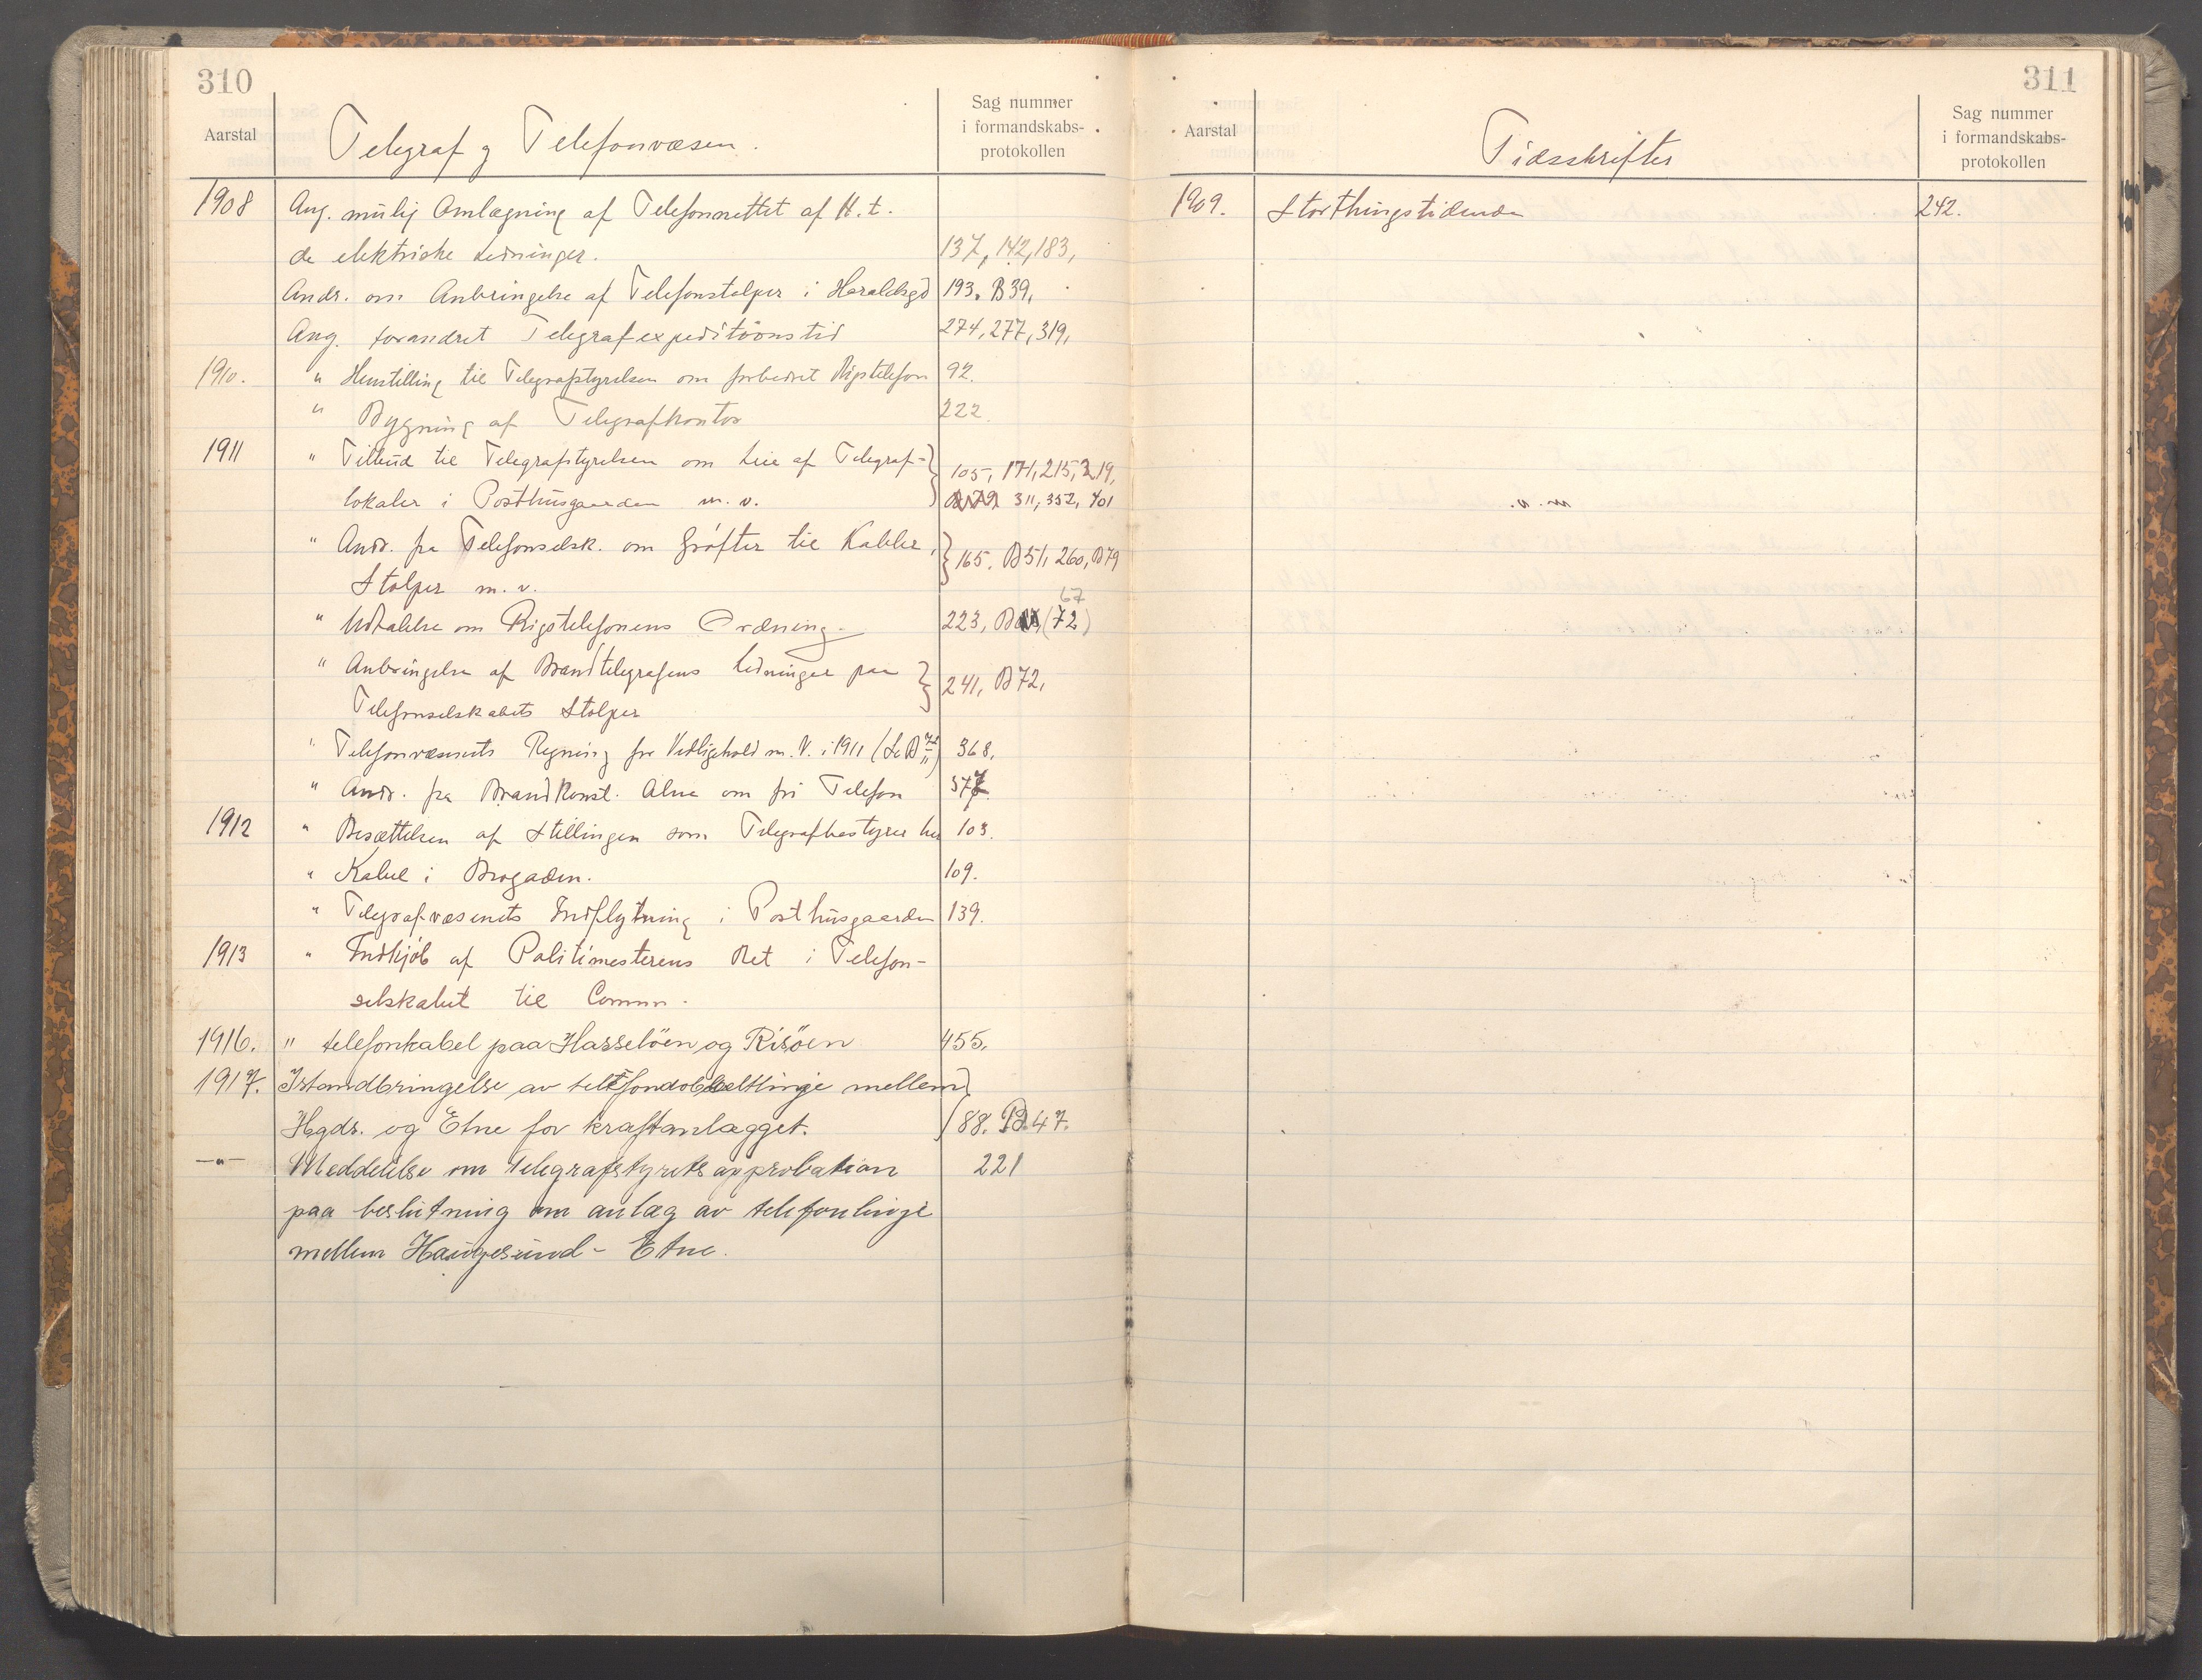 310
Aarstal
Telegraf og Telefonvæsen.
Sag nummer
i formandskabs-
protokollen
1908 Ang. mulig Omlægning af Telefonnettet af H.t.
de elektriske Ledninger. 137, 142, 183,
Andr. om Anbringelse af Telefonstolper i Haraldsgd 193. B39.
Ang. forandret Telegrafexpeditionstid 274, 277, 319,
1910. " Henstilling til Telegrafstyrelsen om forbedret Rigstelefon 92.
" Bygning af Telegrafkontor 222.
1911 " Tilbud til Telegrafstyrelsen om Leie af Telegraf- 105, 171, 215, 219,
lokaler i Posthusgaarden m.v. 311, 352, 401
" Andr. fra Telefonselsk. om Grøfter til Kabler, 165. B51, 260, B79
Stolper m.v.
67
" Udtalelse om Rigstelefonens Ordning. 223, (72)
" Anbringelse af Brandtelegrafens Ledninger paa 241, B72,
Telefonselskabets Stolper
" Telefonvæsenets Regning for Vedligehold m.V. i 1911 368,
" Andr. fra Brandkonst. Alne om fri Telefon 377.
1912 " Besættelsen af Stillingen som Telegrafbestyrer her 103.
" Kabel i Brogaden. 109.
" Telegrafvæsenets Indflytning i Posthusgaarden 139.
1913 " Indkjøb af Politimesterens Ret i Telefon-
selskabet til Comm.
1916. " telefonkabel paa Hasseløen og Risøen 455.
1917. Istandbringelse av telefondobbeltlinje mellem
Hgds. og Etne for kraftanlægget. 88. B.47.
—"— Meddelelse om Telegrafstyrets approbation 221
paa beslutning om anlæg av telefonlinje
mellem Haugesund - Etne.
311
Aarstal
Tidsskrifter
Sag nummer
i formandskabs-
protokollen
1909. Storthingstidende 242.